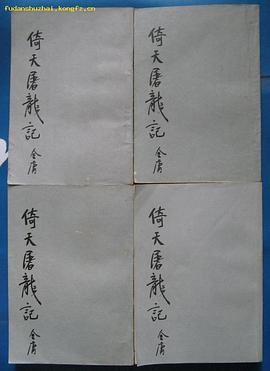 fudanshuzhai.kongfz.cn
倚天屠龍記
金庸
倚天屠龍記
金庸
倚天屠龍記
金庸
倚天屠龍記
金庸